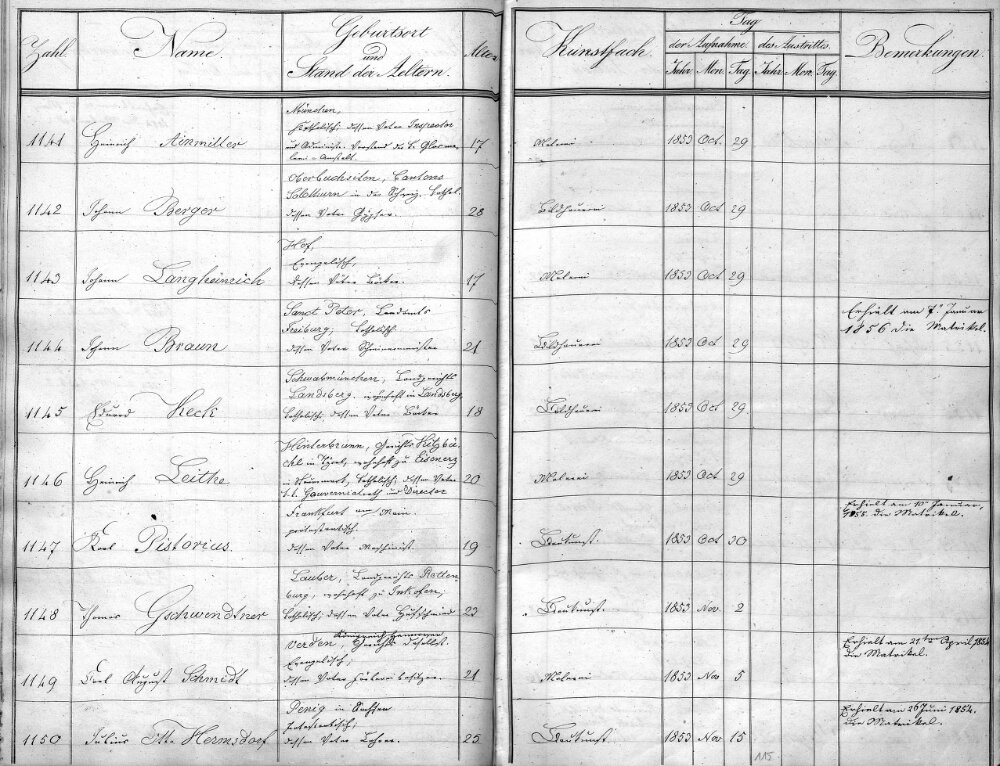 Zahl. Name. Geburtsort und Stand der Aeltern. Alter Kunstfach. Tag der Aufnahme. des Austrittes. Bemerkungen.
Jahr Mon. Tag Jahr Mon. Tag.
München,
Katholisch; dessen Vater Inspector
1141 Heinrich Ainmiller 17 Malerei 1853 Oct. 29
Oberbuchsiten, Cantons
Solothurn in der Schweiz, kathol.
1142 Johann Berger dessen Vater Gypser. 28 Bildhauerei 1853 Oct 29
Hof,
Evangelisch,
1143 Johann Langheinrich dessen Vater Bäcker. 17 Malerei 1853 Oct 29
Sanct Peter, Landamts
Freiburg; katholisch
1144 Johann Braun dessen Vater Schreinermeister 21 Bildhauerei 1853 Oct 29
Erhielt am 7. Januar
1856 die Matrikel.
Schwabmünchen, Landgerichts
Landsberg, wohnhaft in Landsberg
1145 Eduard Heck katholisch; dessen Vater Bäcker 18 Bildhauerei 1853 Oct 29
Hinterbrunn, Gerichts Kitzbü-
chl in Tyrol, wohnhaft zu Eisenerz
in Steiermark, katholisch; dessen Vater
1146 Heinrich Leithe 20 Malerei 1853 Oct 29
k. k. Gouvernialrath und Director
Frankfurt am Main.
protestantisch.
1147 Karl Pistorius. dessen Vater Maschinist. 19 Baukunst. 1853 Oct 30
Erhielt am 10 Januar,
1855. die Matrikel.
Lauber, Landgerichts Rotten-
burg, wohnhaft zu Inkofen,
1148 Thomas Gschwendtner katholisch, dessen Vater Hufschmied 23 Baukunst. 1853 Nov. 2
Königreich Hannover
Verden, Gerichts daselbst.
Evangelisch;
1149 Carl August Schmidt dessen Vater 21 Malerei 1853 Nov 5
Erhielt am 21ten April, 1854
die Matrikel.
Penig in Sachsen
protestantisch;
1150 Julius Otto Hermsdorf dessen Vater Lehrer. 25 Baukunst 1853 Nov. 15
Erhielt am 26 Juni 1854.
die Matrikel.
115